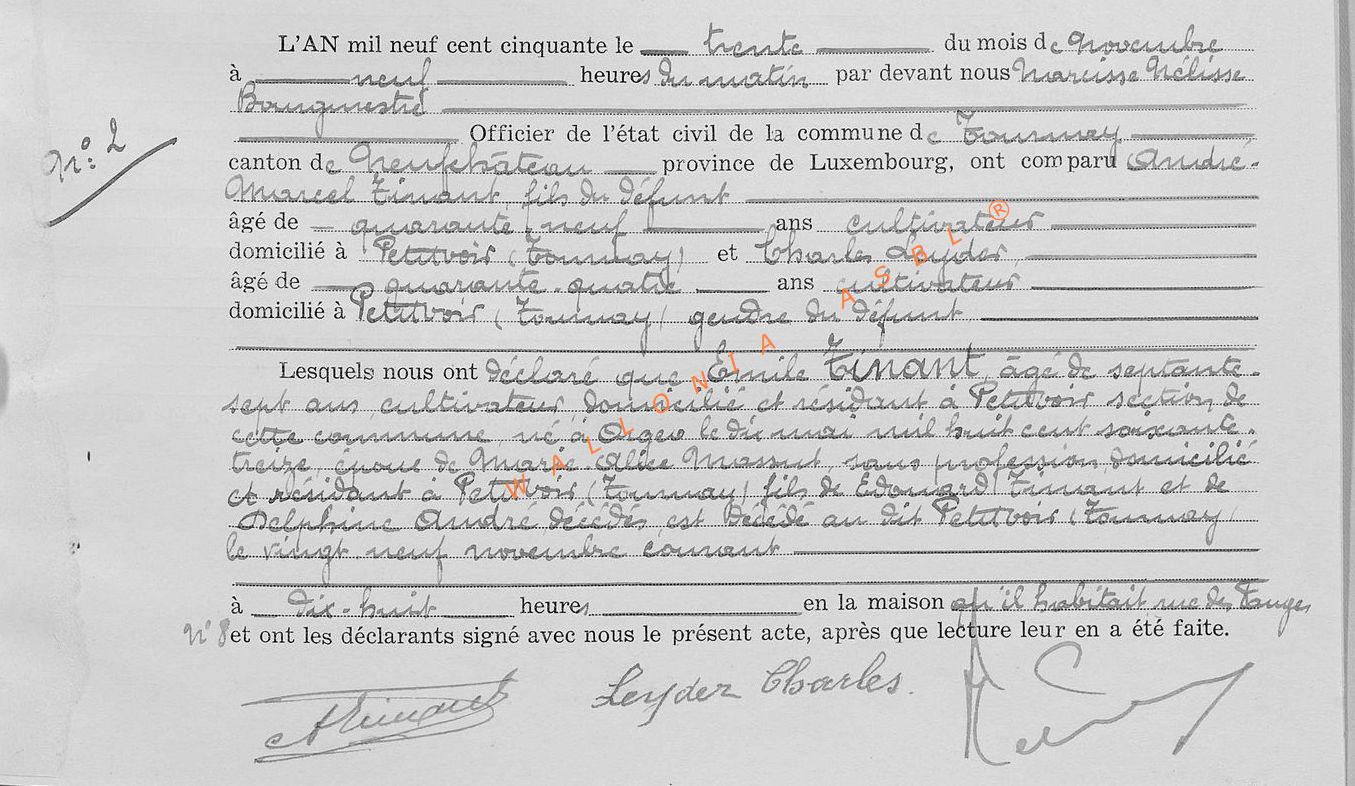 L'AN mil neuf cent cinquante le trente du mois de novembre
à neuf heures du matin par devant nous Narcisse Nélisse
Bourgmestre
Officier de l'état civil de la commune de Tournay
N°: 2
canton de Neufchâteau province de Luxembourg, ont comparu André-
Marcel Tinant, fils du défunt
âgé de quarante neuf ans cultivateur
domicilié à Petitvoir (Tournay) et Charles Leyder,
âgé de quarante-quatre ans cultivateur
domicilié à Petitvoir (Tournay) gendre du défunt
Lesquels nous ont déclaré que Emile TINANT, âgé de septante-
sept ans, cultivateur domicilié et résidant à Petitvoir section de
cette commune, né à Orgeo le dix mai mil huit cent soixante-
treize, époux de Marie Alice Massut, sans profession domicilié
et résidant à Petitvoir (Tournay) fils de Edouard Tinant et de
Delphine André décédés, est décédé au dit Petitvoir (Tournay)
le vingt neuf novembre courant
à dix-huit heures en la maison qu'il habitait rue des Fanges
N° 8 et ont les déclarants signé avec nous le présent acte, après que lecture leur en a été faite.
ATinant Leyder Charles.
WALLONIA ASBL ®